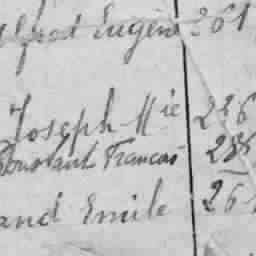 Alfred Eugène 261
Joseph Mie 226
Constant Francois 288
and Emile 26